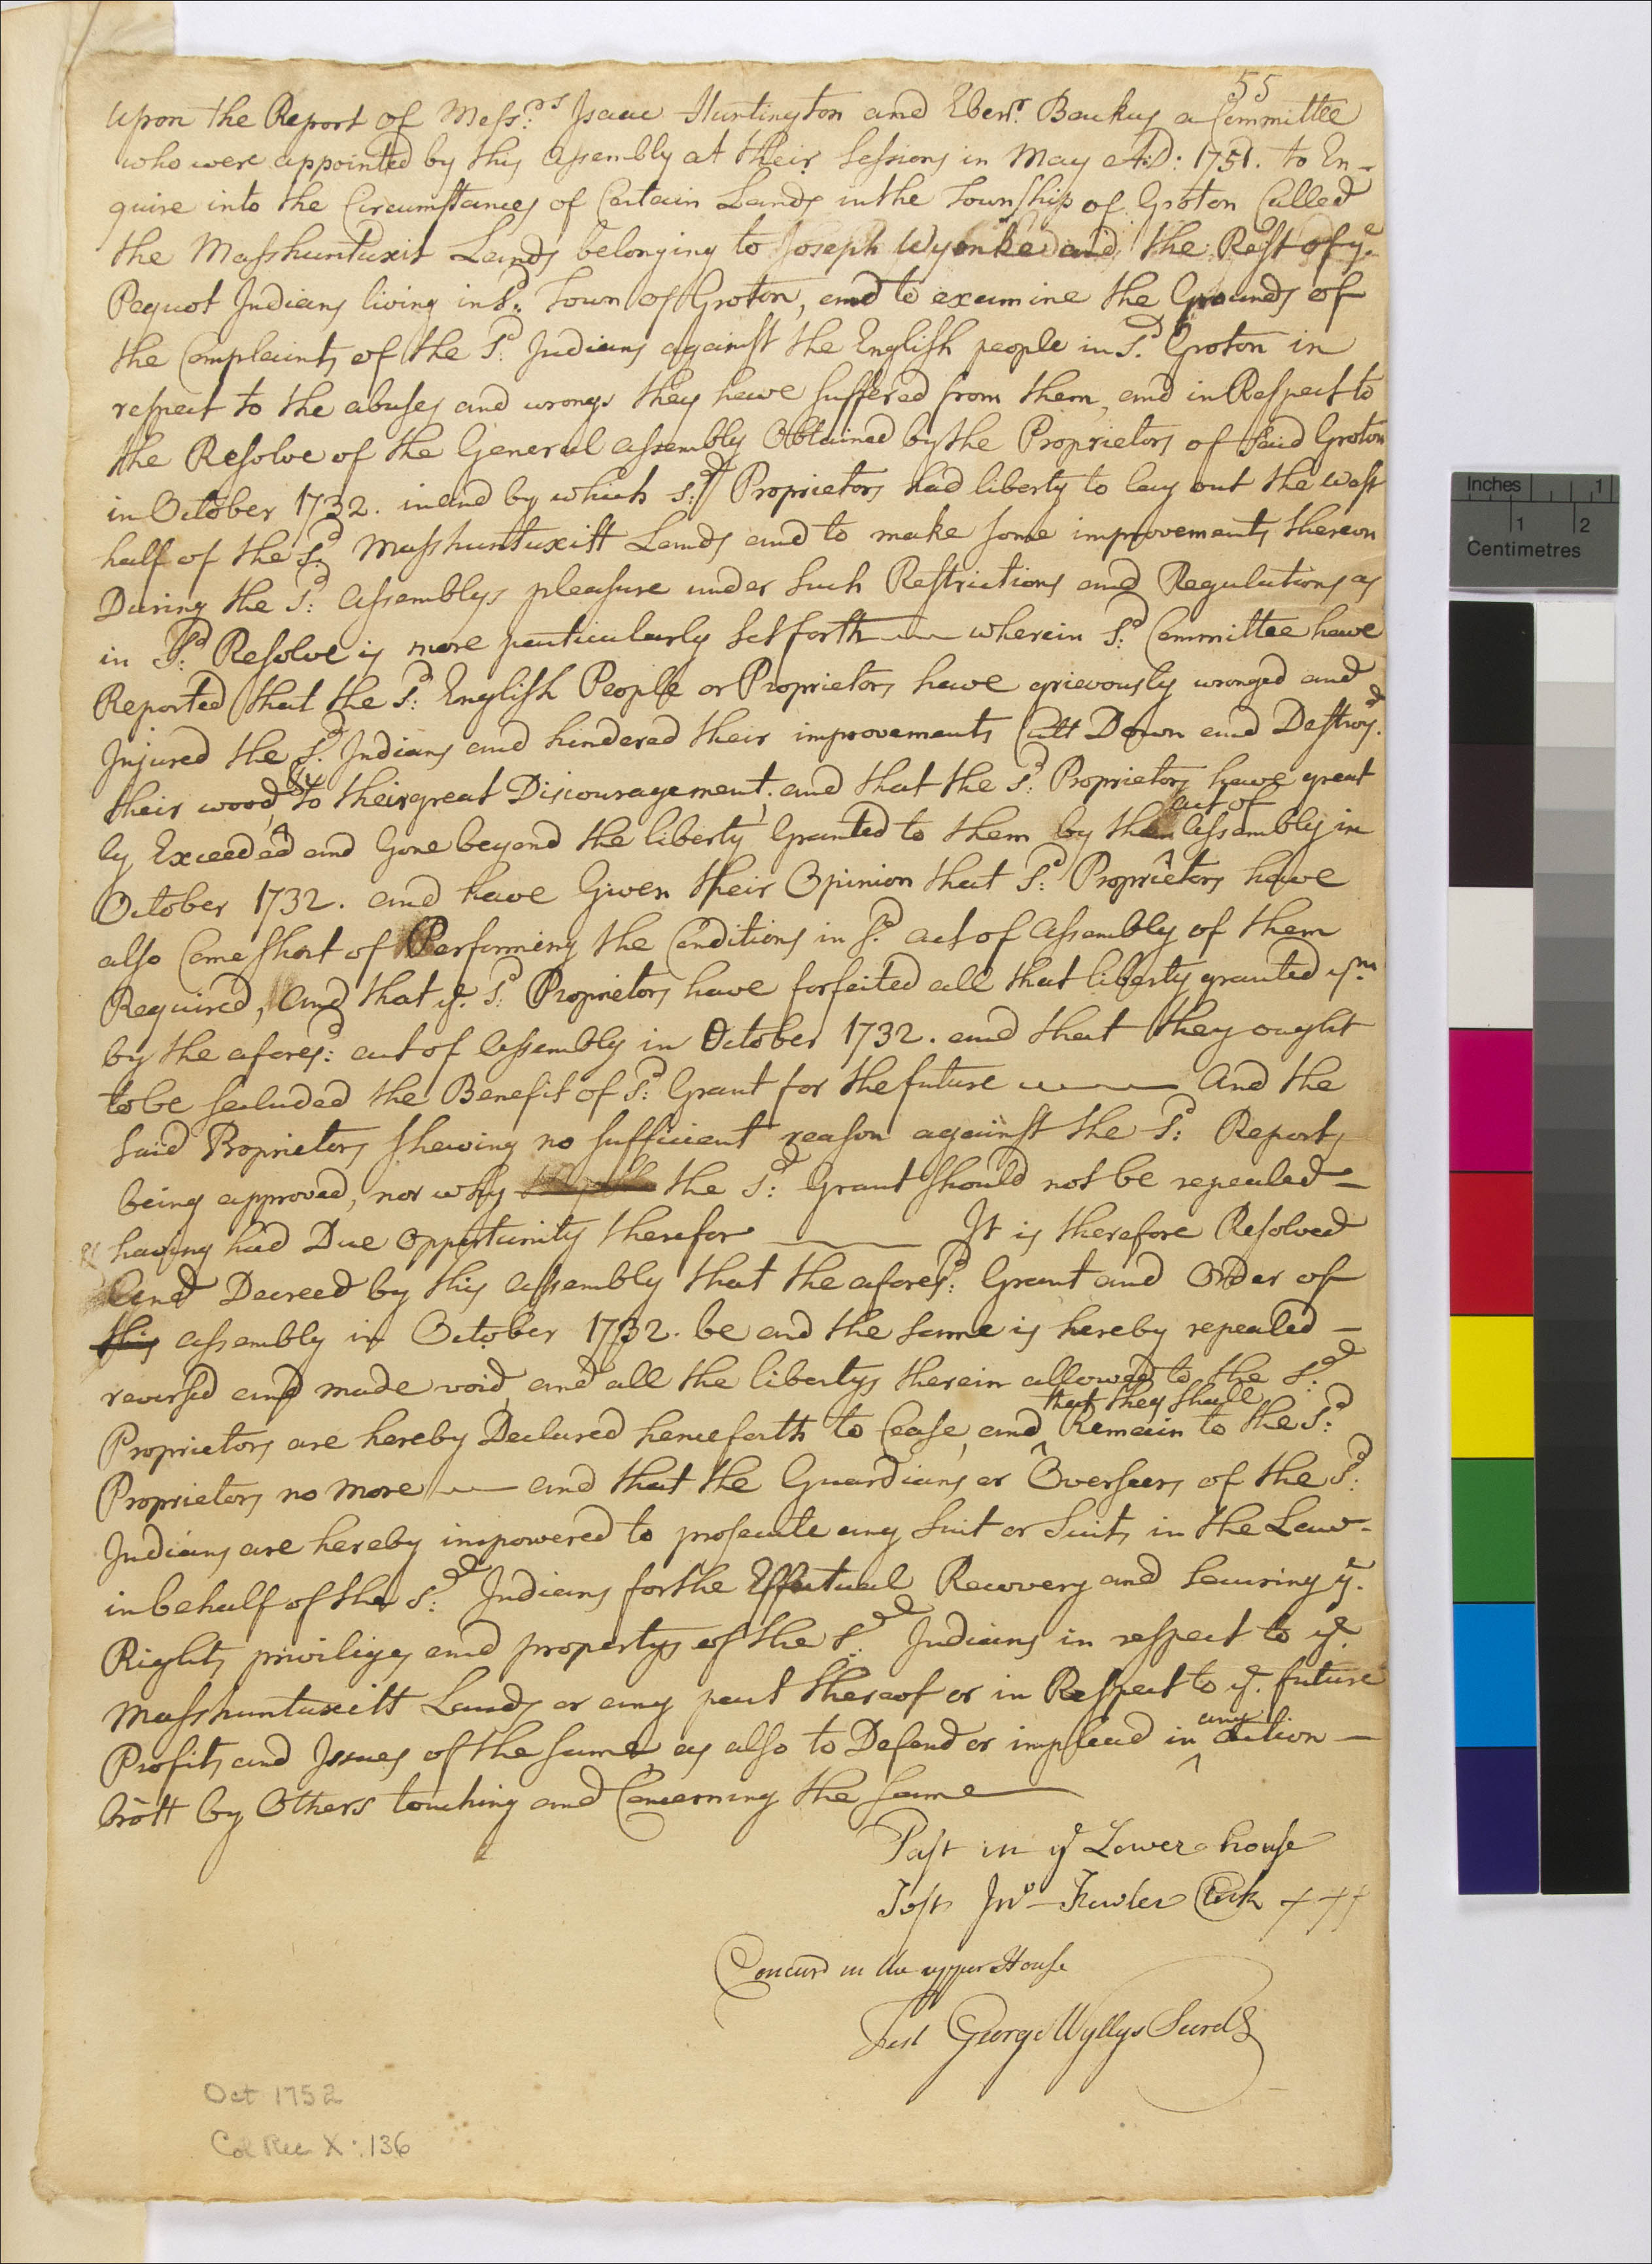 55
Upon the Report of Mess.rs Isaac Huntington and Eben.r Backus a Committee
who were appointed by this Assembly at their Sessions in May A:D: 1751. to En-
quire into the Circumstances of Certain Lands in the Township of Groton Called
the Masshuntuxit Lands belonging to Joseph Wyonke and the Rest of y.e
Pequot Indians living in s.d Town of Groton, and to examine the Grounds of
the Complaints of the s.d Indians against the English people in s.d Groton in
respect to the abuses and wrongs they have suffered from them, and in Respect to
the Resolve of the General Assembly Obtained by the Proprietors of said Groton
in October 1732. in and by which s.d Proprietors had liberty to lay out the west
half of the s.d Masshuntuxitt Lands and to make some improvements thereon
During the s.d Assemblys pleasure under such Restrictions and Regulations as
in s.d Resolve is more particularly set forth — wherein s.d Committee have
Reported that the s.d English People or Proprietors have grievously wronged and
Injured the s.d Indians and hindered their improvements Cutt Down and Destroy.d
their wood, &c to their great Discouragement; and that the s.d Proprietors have great
ly Exceeded and Gone beyond the liberty Granted to them by the act of Assembly in
October 1732. and have Given their Opinion that s.d Proprietors have
also Come short of Performing the Conditions in s.d act of Assembly of them
Required, And that y.e s.d Proprietors have forfeited all that liberty granted y.m
by the afores.d act of Assembly in October 1732. and that they ought
to be secluded the Benefit of s.d Grant for the future — And the
said Proprietors shewing no sufficient reason against the s.d Reports
being approved, nor why the s.d Grant should not be repealed —
& having had Due Opportunity therefor — It is therefore Resolved
And Decreed by this Assembly that the afores.d Grant and Order of
this assembly in October 1732. be and the same is hereby repealed —
reversed and made void, and all the libertys therein allowed to the s.d
Proprietors are hereby Declared henceforth to Cease, and that they shall Remain to the s.d
Proprietors no more — and that the Guardians or Overseers of the s.d
Indians are hereby impowered to prosecute any suit or suits in the Law -
in behalf of the s.d Indians for the Effectual Recovery and securing y.e
Rights priviliges and propertys of the s.d Indians in respect to y.e
Masshuntuxitt Lands or any part thereof or in Respect to y.e future
Profits and Issues of the same, as also to Defend or implead in any action —
brôtt by Others touching and Concerning the same
Past in y.e Lower house
Test Jn.o Fowler Clerk
Concurd in the upper House
Test George Wyllys Secret.y
Oct 1752
Col Rec X: 136